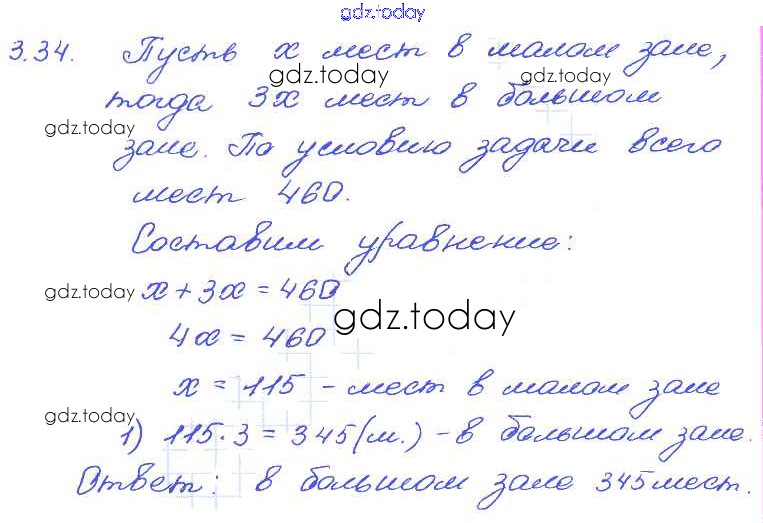 gdz.today
3.34. Пусть x мест в малом зале,
gdz.today gdz.today
тогда 3x мест в большом
gdz.today
зале. По условию задачи всего
мест 460.
Составим уравнение:
gdz.today x + 3x = 460
gdz.today
4x = 460
x = 115 - мест в малом зале
gdz.today
1) 115·3 = 345(м.) - в большом зале.
Ответ: в большом зале 345 мест.